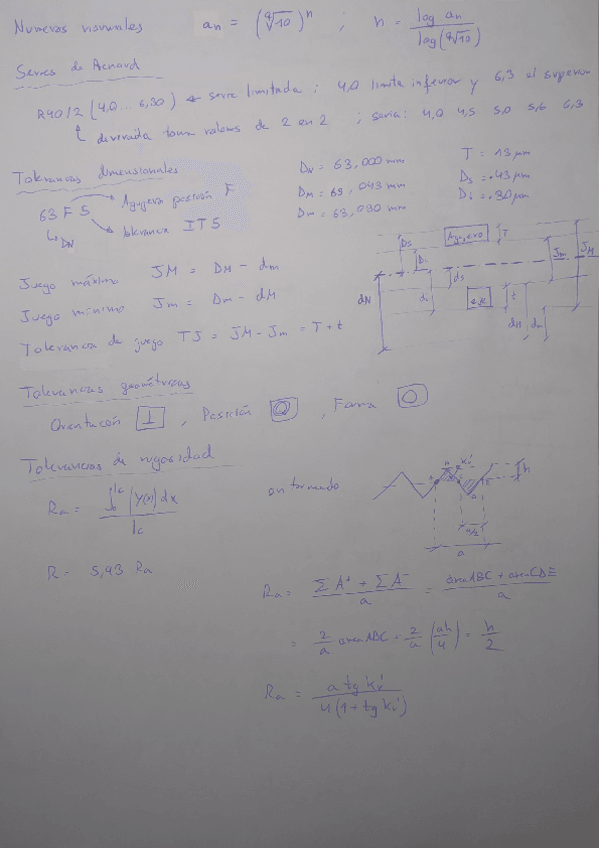 Numeros normales aₙ = (ᑫ√10)ⁿ ; n = log aₙ / log(ᑫ√10)
Series de Renard
R40/2 (4,0 ... 6,30) ← serie limitada ; 4,0 limite inferior y 6,3 el superior
derivada toma valores de 2 en 2 ; seria: 4,0 4,5 5,0 5,6 6,3
Tolerancias dimensionales
63 F 5 Agujero posición F
DN tolerancia IT5
DN = 63,000 mm T = 13 µm
DM = 63,043 mm Ds = +43 µm
Dm = 63,030 mm Di = +30 µm
Juego máximo JM = DM - dm
Juego mínimo Jm = Dm - dM
Tolerancia de juego TJ = JM - Jm = T + t
Ds Agujero T
Di Jm JM
dN di ds eje t
dM dm
Tolerancias geométricas
Orientación ⊥ , Posición ◎ , Forma ○
Tolerancias de rugosidad
Ra = ∫₀^lc |Y(x)| dx / lc
en torneado
h
a/2
a
R = 5,43 Ra
Ra = (∑ A⁺ + ∑ A⁻) / a = (area ABC + area CDE) / a
= 2/a area ABC = 2/a (ah/4) = h/2
Ra = a tg kr' / 4(1 + tg kr')